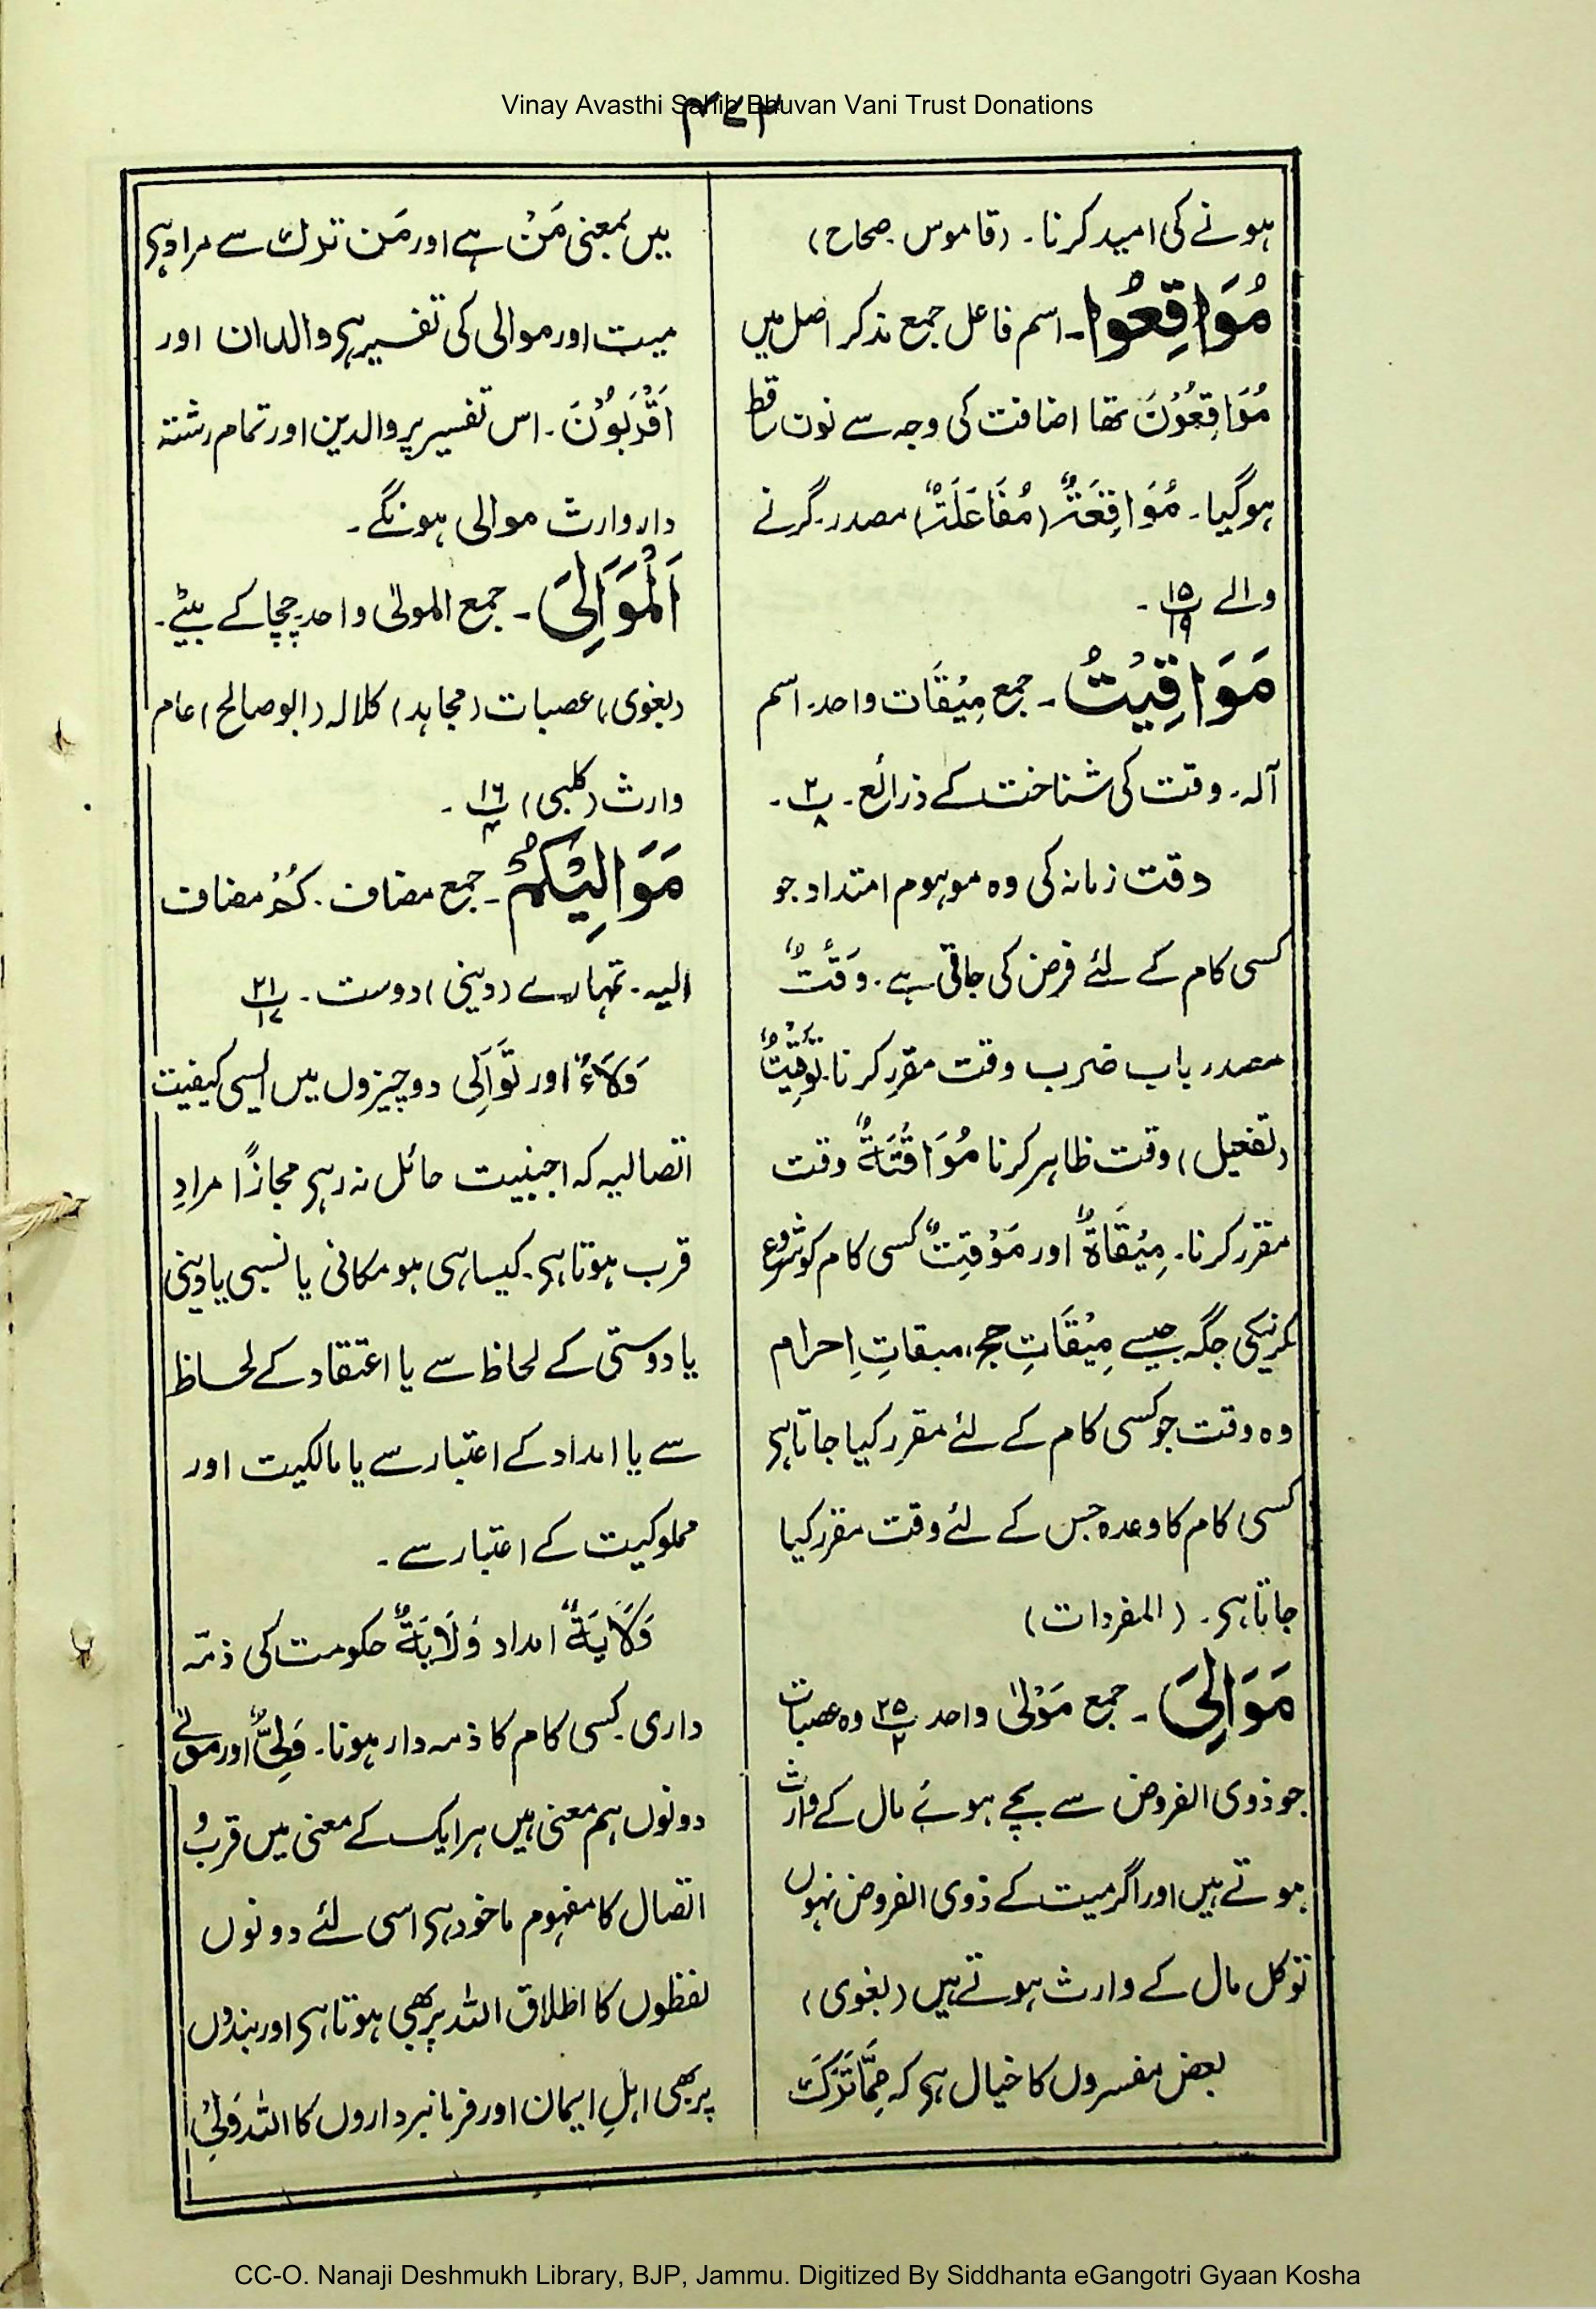 Vinay Avasthi Sahib Bhuvan Vani Trust Donations
ہونے کی امید کرنا۔ (قاموس۔ صحاح)
مُوَاقِعُوا۔ اسم فاعل جمع مذکر اصل میں
مُوَاقِعُوْنَ تھا اضافت کی وجہ سے نون ساقط
ہوگیا۔ مُوَاقِعَۃٌ (مُفَاعَلَۃٌ) مصدر۔ گرنے
والے پ۱۵/۱۹۔
مَوَاقِیْتُ۔ جمع مِیْقَات واحد۔ اسم
آلہ۔ وقت کی شناخت کے ذرائع۔ پ۲/۸۔
وقت زمانہ کی وہ موہوم امتداد جو
کسی کام کے لئے فرض کی جاتی ہے۔ وَقْتٌ
مصدر باب ضرب وقت مقرر کرنا۔ تَوْقِیْتٌ
(تفعیل) وقت ظاہر کرنا مُوَاقَتَۃٌ وقت
مقرر کرنا۔ مِیْقَاۃٌ اور مَوْقِتٌ کسی کام کو شروع
کرنیکی جگہ جیسے مِیْقَاتِ حج، میقاتِ اِحرام
وہ وقت جو کسی کام کے لئے مقرر کیا جاتا ہے
کسی کام کا وعدہ جس کے لئے وقت مقرر کیا
جاتا ہے۔ (المفردات)
مَوَالِیَ۔ جمع مَوْلیٰ واحد پ۲۵/۲ وہ عصبات
جو ذوی الفروض سے بچے ہوئے مال کے وارث
ہوتے ہیں اور اگر میت کے ذوی الفروض نہوں
تو کل مال کے وارث ہوتے ہیں (بغوی)
بعض مفسروں کا خیال ہے کہ مِمَّا تَرَکَ
میں بمعنی مَنْ ہے اور مَن ترک سے مراد ہے
میت اور موالی کی تفسیر ہے والدان اور
اَقْرَبُوْنَ۔ اس تفسیر پر والدین اور تمام رشتہ
دار وارث موالی ہونگے۔
اَلْمَوَالِیَ۔ جمع المولیٰ واحد۔ چچا کے بیٹے۔
(بغوی) عصبات (مجاہد) کلالہ (ابوصالح) عام
وارث (کلبی) پ۱۶/۴۔
مَوَالِیْکُمْ۔ جمع مضاف۔ کُمْ مضاف
الیہ۔ تمہارے (دینی) دوست۔ پ۲۱/۱۷
وَلَاءٌ اور تَوَالِی دو چیزوں میں ایسی کیفیت
اتصالیہ کہ اجنبیت حائل نہ رہے مجازًا مراد
قرب ہوتا ہے۔ کیسا ہی ہو مکانی یا نسبی یا دینی
یا دوستی کے لحاظ سے یا اعتقاد کے لحاظ
سے یا امداد کے اعتبار سے یا مالکیت اور
مملوکیت کے اعتبار سے۔
وَلَایَۃٌ امداد وِلَایَۃٌ حکومت کی ذمّہ
داری۔ کسی کام کا ذمہ دار ہونا۔ وَلِیٌّ اور مولٰے
دونوں ہم معنی ہیں ہر ایک کے معنی میں قرب و
اتصال کا مفہوم ماخوذ ہے اسی لئے دونوں
لفظوں کا اطلاق اللہ پر بھی ہوتا ہے اور بندوں
پر بھی اہلِ ایمان اور فرمانبرداروں کا اللہ وَلِیْ
CC-O. Nanaji Deshmukh Library, BJP, Jammu. Digitized By Siddhanta eGangotri Gyaan Kosha